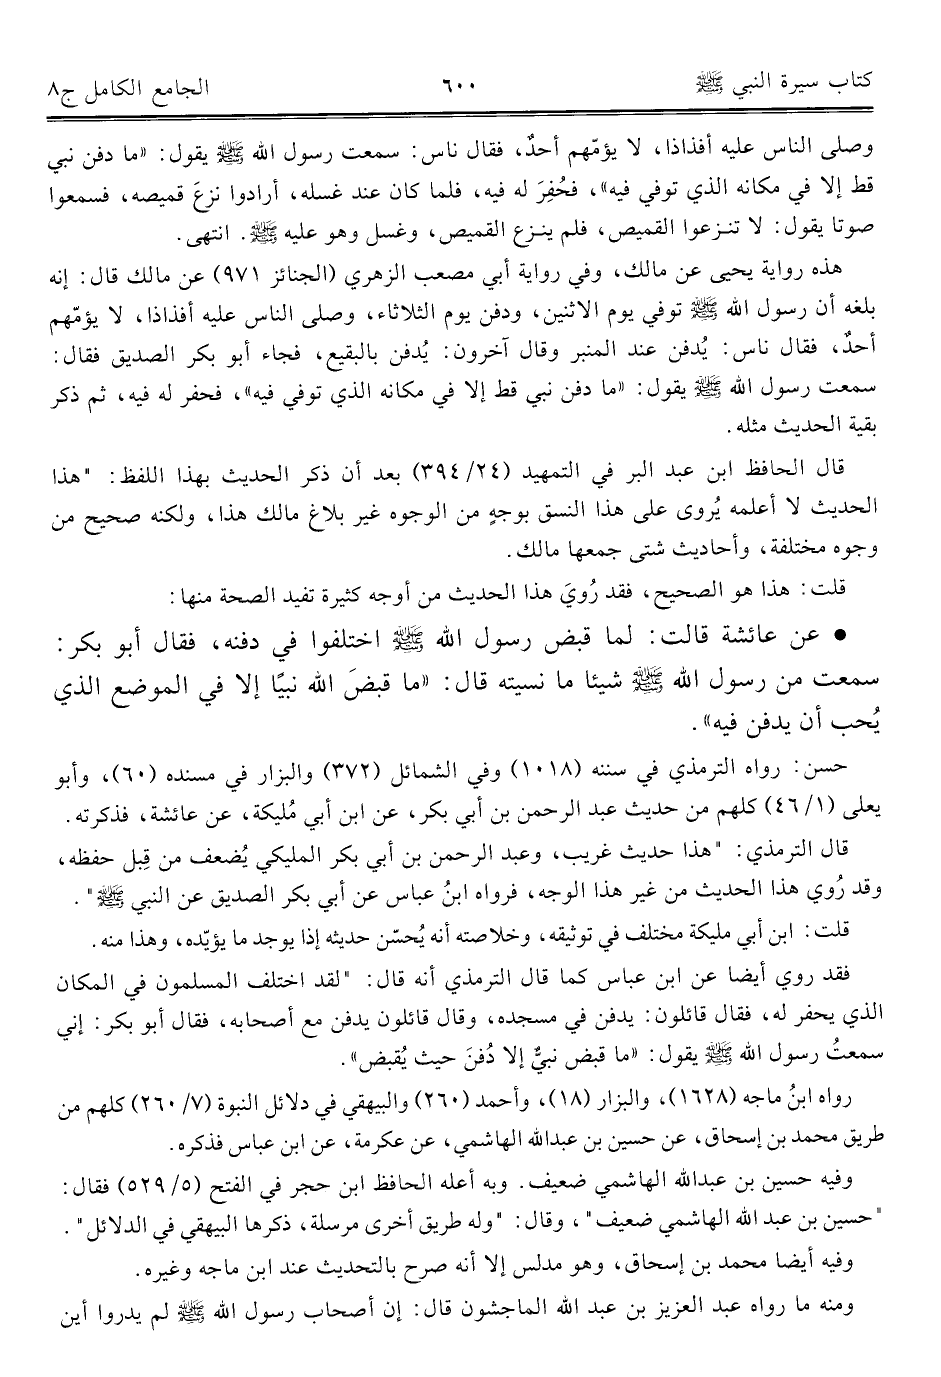 كتاب سيرة النبي ﷺ ٦٠٠ الجامع الكامل ج٨
وصلى الناس عليه أفذاذا، لا يؤمّهم أحدٌ، فقال ناس: سمعت رسول الله ﷺ يقول: «ما دفن نبي
قط إلا في مكانه الذي توفي فيه»، فحُفِرَ له فيه، فلما كان عند غسله، أرادوا نزعَ قميصه، فسمعوا
صوتا يقول: لا تنـزعوا القميص، فلم ينـزع القميص، وغسل وهو عليه ﷺ. انتهى.
هذه رواية يحيى عن مالك، وفي رواية أبي مصعب الزهري (الجنائز ٩٧١) عن مالك قال: إنه
بلغه أن رسول الله ﷺ توفي يوم الاثنين، ودفن يوم الثلاثاء، وصلى الناس عليه أفذاذا، لا يؤمّهم
أحدٌ، فقال ناس: يُدفن عند المنبر وقال آخرون: يُدفن بالبقيع، فجاء أبو بكر الصديق فقال:
سمعت رسول الله ﷺ يقول: «ما دفن نبي قط إلا في مكانه الذي توفي فيه»، فحفر له فيه، ثم ذكر
بقية الحديث مثله.
قال الحافظ ابن عبد البر في التمهيد (٢٤/ ٣٩٤) بعد أن ذكر الحديث بهذا اللفظ: "هذا
الحديث لا أعلمه يُروى على هذا النسق بوجهٍ من الوجوه غير بلاغ مالك هذا، ولكنه صحيح من
وجوه مختلفة، وأحاديث شتى جمعها مالك.
قلت: هذا هو الصحيح، فقد رُويَ هذا الحديث من أوجه كثيرة تفيد الصحة منها:
• عن عائشة قالت: لما قبض رسول الله ﷺ اختلفوا في دفنه، فقال أبو بكر:
سمعت من رسول الله ﷺ شيئا ما نسيته قال: «ما قبضَ الله نبيًا إلا في الموضع الذي
يُحب أن يدفن فيه».
حسن: رواه الترمذي في سننه (١٠١٨) وفي الشمائل (٣٧٢) والبزار في مسنده (٦٠)، وأبو
يعلى (١/ ٤٦) كلهم من حديث عبد الرحمن بن أبي بكر، عن ابن أبي مُليكة، عن عائشة، فذكرته.
قال الترمذي: "هذا حديث غريب، وعبد الرحمن بن أبي بكر المليكي يُضعف من قِبل حفظه،
وقد رُوي هذا الحديث من غير هذا الوجه، فرواه ابنُ عباس عن أبي بكر الصديق عن النبي ﷺ".
قلت: ابن أبي مليكة مختلف في توثيقه، وخلاصته أنه يُحسّن حديثه إذا يوجد ما يؤيّده، وهذا منه.
فقد روي أيضا عن ابن عباس كما قال الترمذي أنه قال: "لقد اختلف المسلمون في المكان
الذي يحفر له، فقال قائلون: يدفن في مسجده، وقال قائلون يدفن مع أصحابه، فقال أبو بكر: إني
سمعتُ رسول الله ﷺ يقول: «ما قبض نبيٌّ إلا دُفنَ حيث يُقبض».
رواه ابنُ ماجه (١٦٢٨)، والبزار (١٨)، وأحمد (٢٦٠) والبيهقي في دلائل النبوة (٧/ ٢٦٠) كلهم من
طريق محمد بن إسحاق، عن حسين بن عبدالله الهاشمي، عن عكرمة، عن ابن عباس فذكره.
وفيه حسين بن عبدالله الهاشمي ضعيف. وبه أعله الحافظ ابن حجر في الفتح (٥/ ٥٢٩) فقال:
"حسين بن عبد الله الهاشمي ضعيف"، وقال: "وله طريق أخرى مرسلة، ذكرها البيهقي في الدلائل".
وفيه أيضا محمد بن إسحاق، وهو مدلس إلا أنه صرح بالتحديث عند ابن ماجه وغيره.
ومنه ما رواه عبد العزيز بن عبد الله الماجشون قال: إن أصحاب رسول الله ﷺ لم يدروا أين